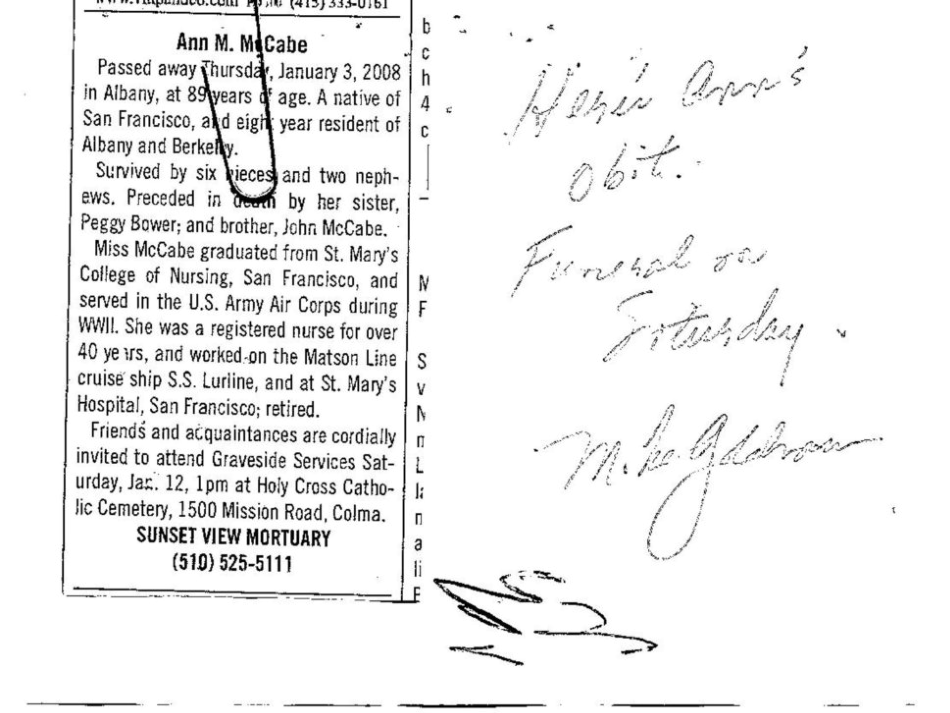 (415) 333-0161
Ann M. McCabe
Passed away Thursday, January 3, 2008
in Albany, at 89 years of age. A native of
San Francisco, and eight year resident of
Albany and Berkeley.
Survived by six nieces and two neph-
ews. Preceded in death by her sister,
Peggy Bower; and brother, John McCabe.
Miss McCabe graduated from St. Mary's
College of Nursing, San Francisco, and
served in the U.S. Army Air Corps during
WWII. She was a registered nurse for over
40 years, and worked on the Matson Line
cruise ship S.S. Lurline, and at St. Mary's
Hospital, San Francisco; retired.
Friends and acquaintances are cordially
invited to attend Graveside Services Sat-
urday, Jan. 12, 1pm at Holy Cross Catho-
lic Cemetery, 1500 Mission Road, Colma.
SUNSET VIEW MORTUARY
(510) 525-5111
b
c
h
4
c
M
F
S
v
N
n
L
n
a
li
Ann's
Obit.
Funeral on
Saturday.
Mike